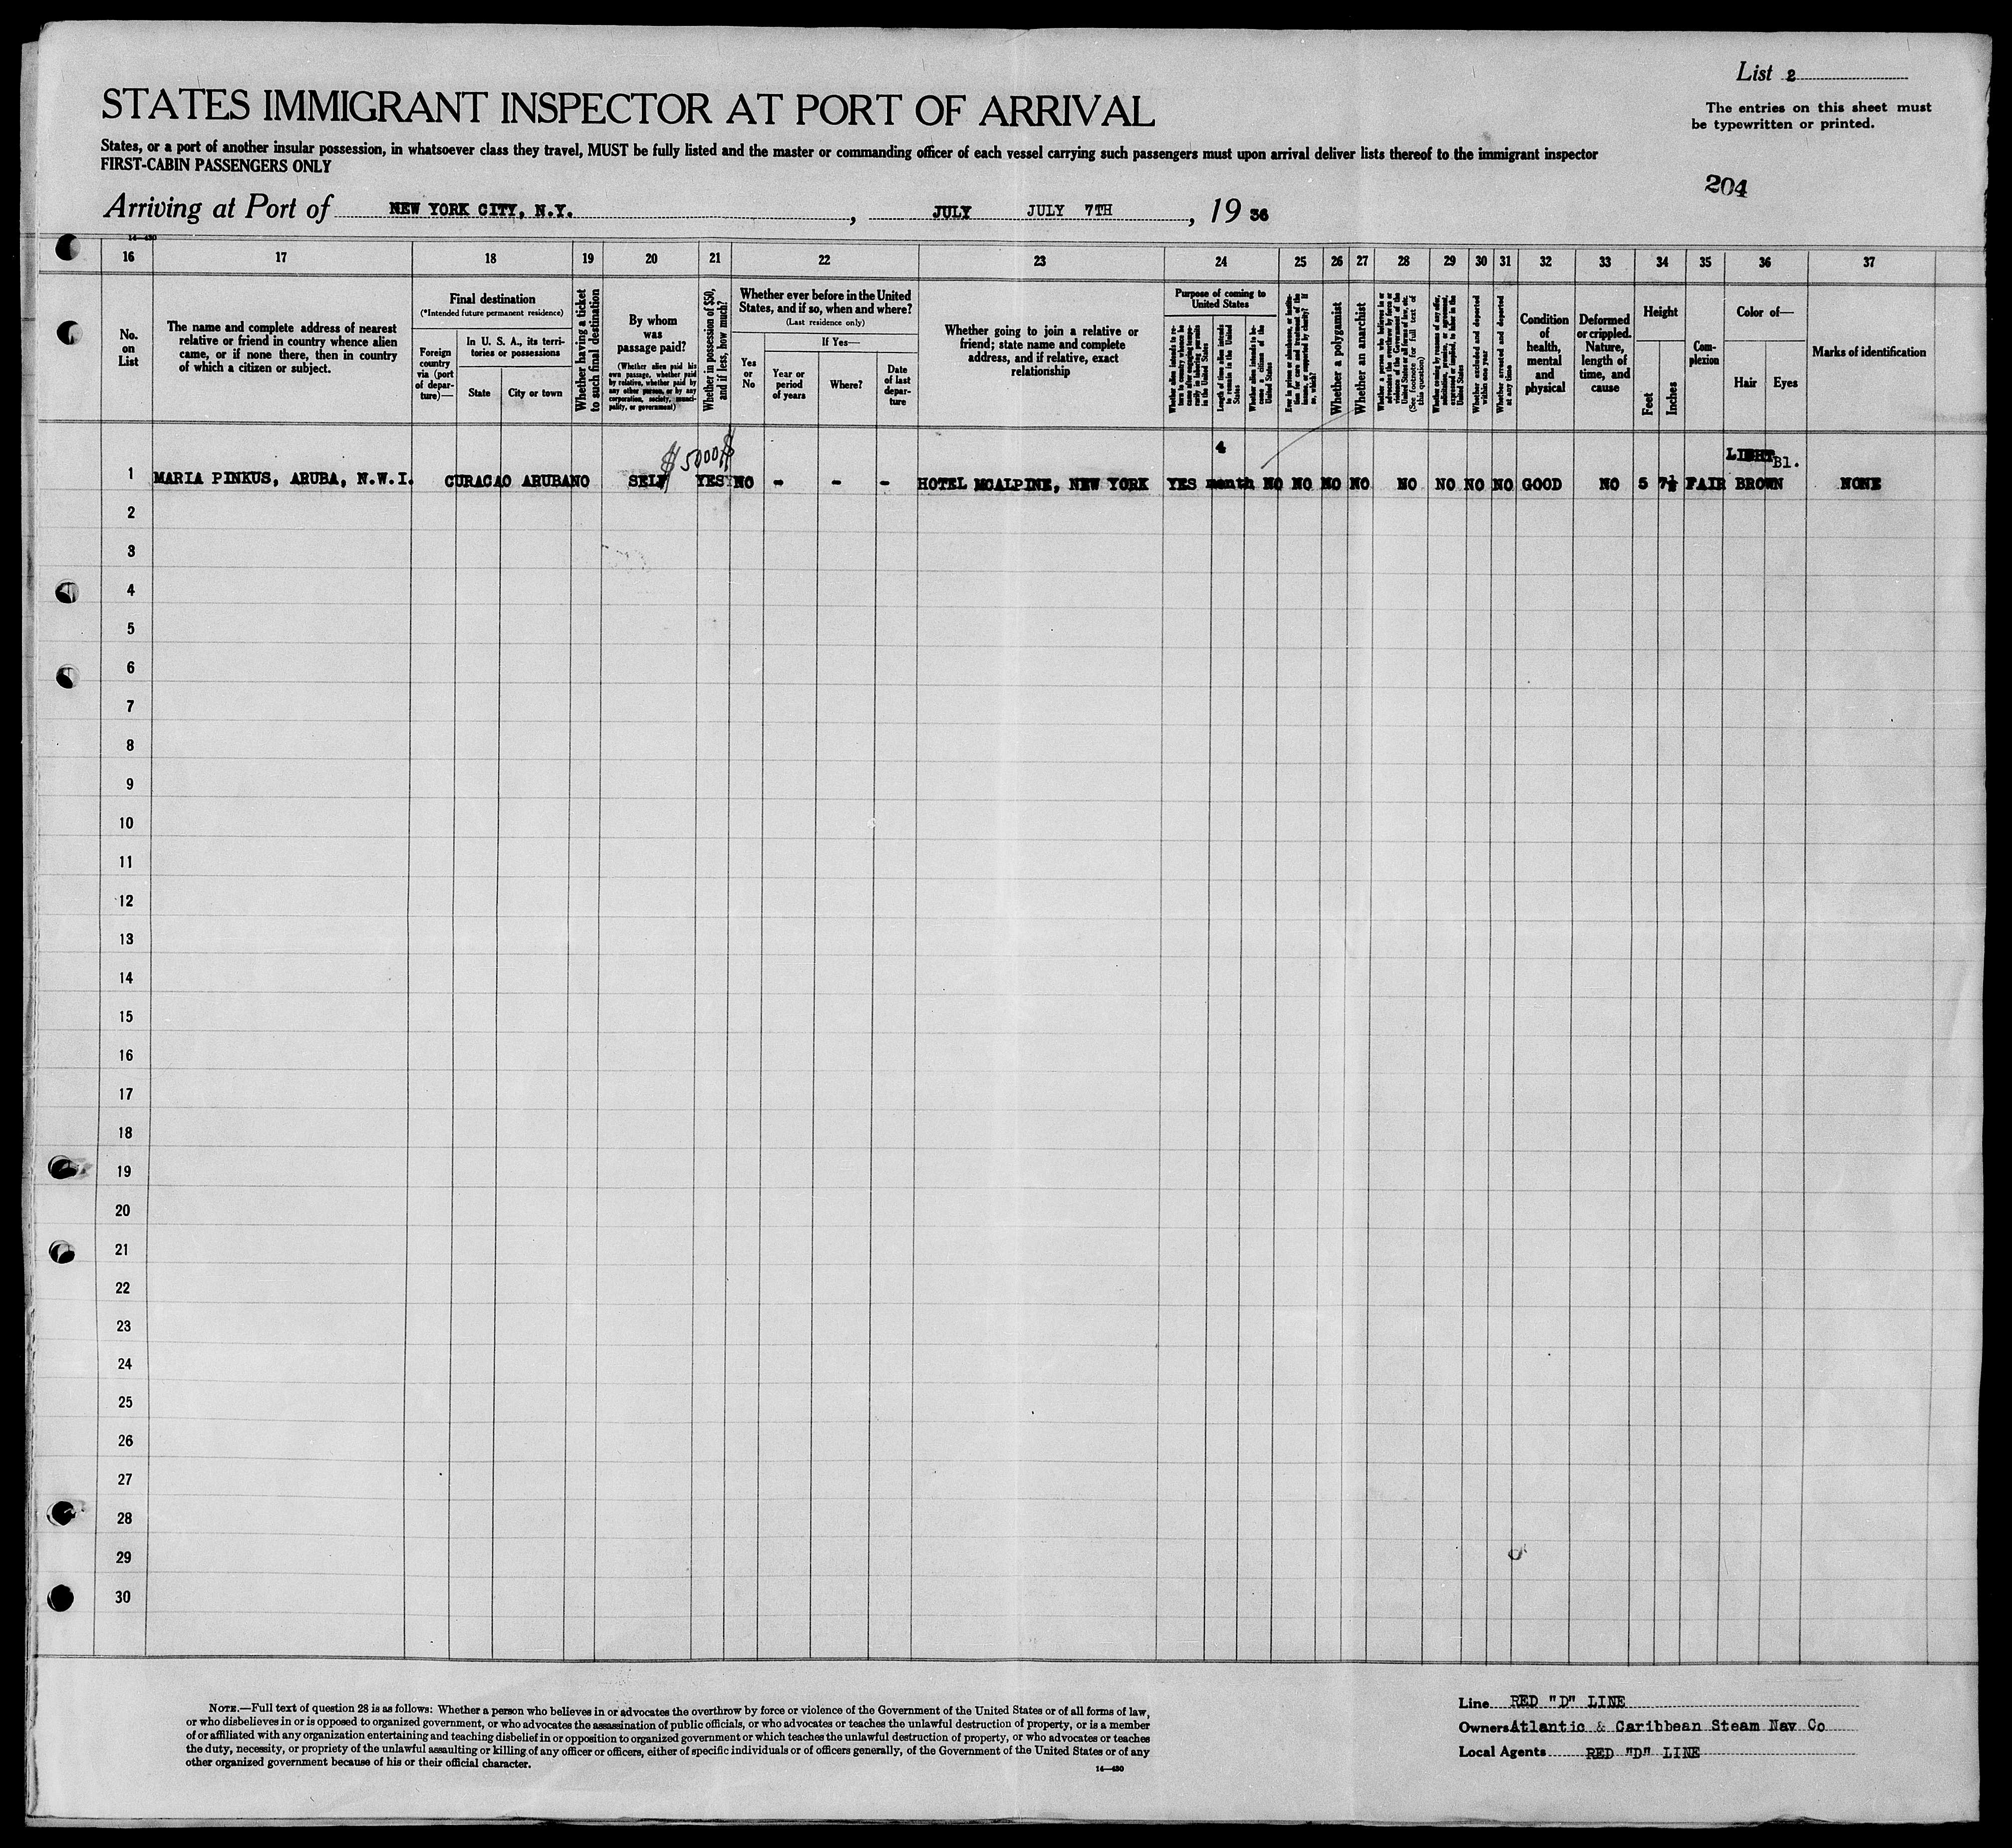 List 2
STATES IMMIGRANT INSPECTOR AT PORT OF ARRIVAL
The entries on this sheet must
be typewritten or printed.
States, or a port of another insular possession, in whatsoever class they travel, MUST be fully listed and the master or commanding officer of each vessel carrying such passengers must upon arrival deliver lists thereof to the immigrant inspector
FIRST-CABIN PASSENGERS ONLY
204
Arriving at Port of NEW YORK CITY, N.Y. , JULY JULY 7TH , 19 36
14—430
16 17 18 19 20 21 22 23 24 25 26 27 28 29 30 31 32 33 34 35 36 37
No.
on
List
The name and complete address of nearest
relative or friend in country whence alien
came, or if none there, then in country
of which a citizen or subject.
Final destination
(*Intended future permanent residence)
Foreign
country
via (port
of depar-
ture)—
In U. S. A., its terri-
tories or possessions
State
City or town
Whether having a ticket
to such final destination
By whom
was
passage paid?
(Whether alien paid his
own passage, whether paid
by relative, whether paid by
any other person, or by any
corporation, society, munici-
pality, or government)
Whether in possession of $50,
and if less, how much?
Whether ever before in the United
States, and if so, when and where?
(Last residence only)
Yes
or
No
If Yes—
Year or
period
of years
Where?
Date
of last
depar-
ture
Whether going to join a relative or
friend; state name and complete
address, and if relative, exact
relationship
Purpose of coming to
United States
Length of time alien intends
to remain in the United
States
Whether alien intends to be-
come a citizen of the
United States
Whether a polygamist
Whether an anarchist
(See footnote for full text of
this question)
Whether excluded and deported
within one year
Whether arrested and deported
at any time
Condition
of
health,
mental
and
physical
Deformed
or crippled.
Nature,
length of
time, and
cause
Height
Feet
Inches
Com-
plexion
Color of—
Hair
Eyes
Marks of identification
$5000
4
LIGHT Bl.
1 MARIA PINKUS, ARUBA, N.W.I. CURACAO ARUBANO SELF YES NO - - - HOTEL MCALPINE, NEW YORK YES month NO NO NO NO NO NO NO NO GOOD NO 5 7½ FAIR BROWN NONE
2
3
4
5
6
7
8
9
10
11
12
13
14
15
16
17
18
19
20
21
22
23
24
25
26
27
28
29
30
NOTE.—Full text of question 28 is as follows: Whether a person who believes in or advocates the overthrow by force or violence of the Government of the United States or of all forms of law,
or who disbelieves in or is opposed to organized government, or who advocates the assassination of public officials, or who advocates or teaches the unlawful destruction of property, or is a member
of or affiliated with any organization entertaining and teaching disbelief in or opposition to organized government or which teaches the unlawful destruction of property, or who advocates or teaches
the duty, necessity, or propriety of the unlawful assaulting or killing of any officer or officers, either of specific individuals or of officers generally, of the Government of the United States or of any
other organized government because of his or their official character.
14—430
Line RED "D" LINE
Owners Atlantic & Caribbean Steam Nav Co
Local Agents RED "D" LINE